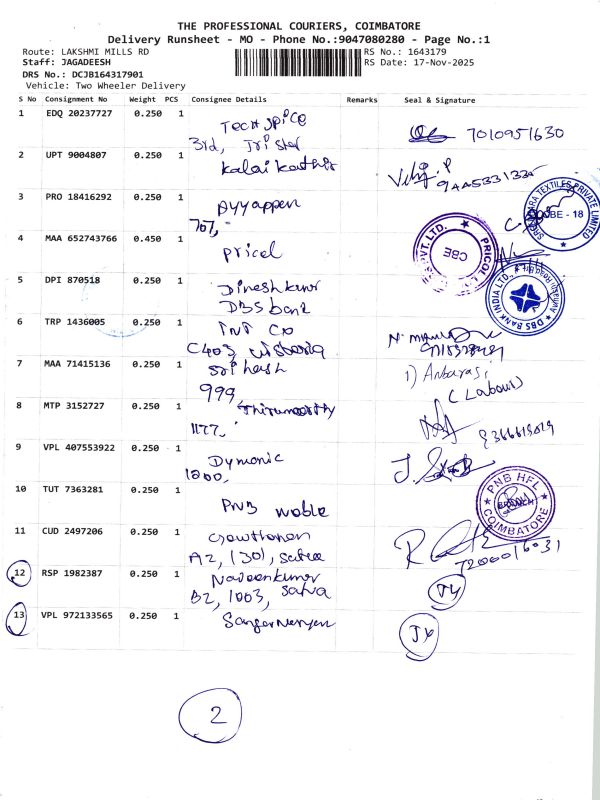 THE PROFESSIONAL COURIERS, COIMBATORE
Delivery Runsheet - MO - Phone No.:9047080280 - Page No.:1
Route: LAKSHMI MILLS RD
RS No.: 1643179
Staff: JAGADEESH
RS Date: 17-Nov-2025
DRS No.: DCJB164317901
Vehicle: Two Wheeler Delivery
S No Consignment No Weight PCS Consignee Details Remarks Seal & Signature
1 EDQ 20237727 0.250 1 Tech spice
3rd, Tri star
7010951630
2 UPT 9004807 0.250 1 Kalai Kathir
3 PRO 18416292 0.250 1 Ayyappen
707,
COBE - 18
4 MAA 652743766 0.450 1 pricol
PRICOL
PVT. LTD.
CBE
5 DPI 870518 0.250 1 Dineshkumar
DBS bank
DBS BANK INDIA LTD.,
6 TRP 1436005 0.250 1 TNT Co
C403,
7 MAA 71415136 0.250 1 Sri hash
999,
1) Anbarasi
(Labour)
8 MTP 3152727 0.250 1 Thirumoorthy
1177,
9 VPL 407553922 0.250 1 Dymonic
1000,
10 TUT 7363281 0.250 1 PNB Noble
PNB HFL
BRANCH
COIMBATORE
11 CUD 2497206 0.250 1
A2, 1301, Satva
7200016031
12 RSP 1982387 0.250 1 Naveenkumar
B2, 1003, Satva
J4
13 VPL 972133565 0.250 1
J4
2